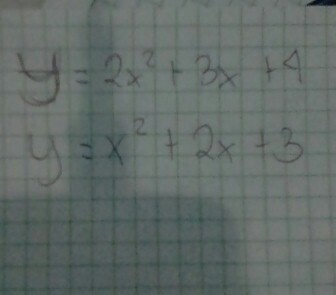 y = 2x² + 3x + 4
y = x² + 2x + 3